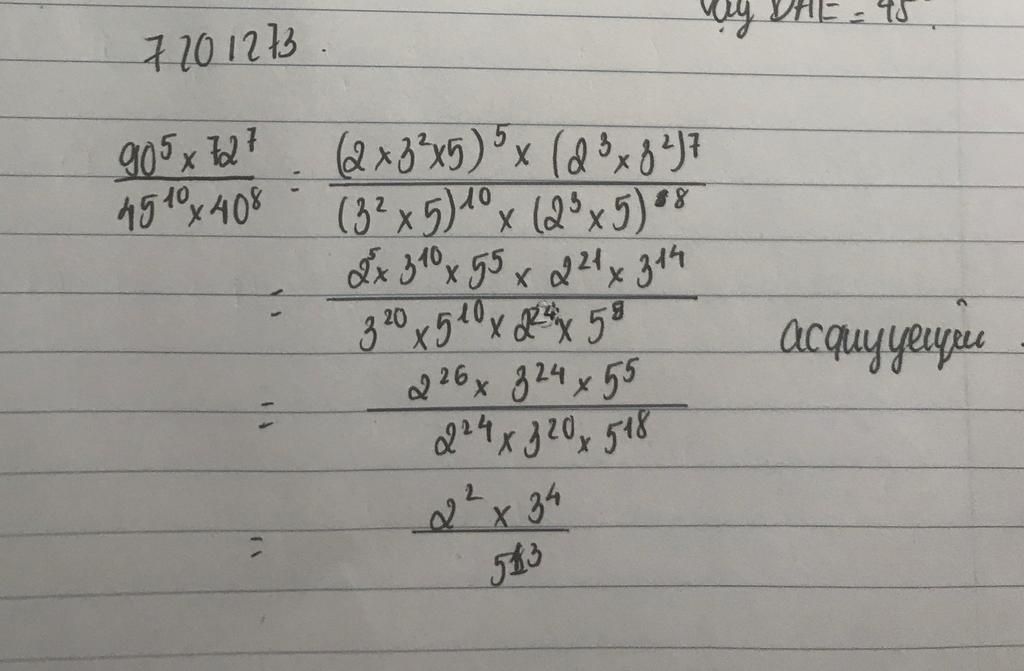 Vậy DAE = 45°.
7201273.
90⁵ × 72⁷ / 45¹⁰ × 40⁸ = (2 × 3² × 5)⁵ × (2³ × 3²)⁷ / (3² × 5)¹⁰ × (2³ × 5)⁸
= 2⁵ × 3¹⁰ × 5⁵ × 2²¹ × 3¹⁴ / 3²⁰ × 5¹⁰ × 2²⁴ × 5⁸
= 2²⁶ × 3²⁴ × 5⁵ / 2²⁴ × 3²⁰ × 5¹⁸
= 2² × 3⁴ / 5¹³